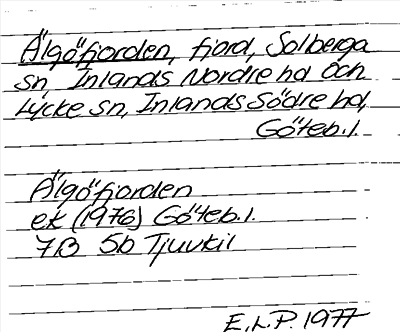 Älgöfjorden, fjord, Solberga
sn, Inlands Nordre hd och
Lycke sn, Inlands Södre hd,
Göteb.l.
Älgöfjorden
ek (1976) Göteb.l.
7B 5b Tjuvkil
E.L.P. 1977